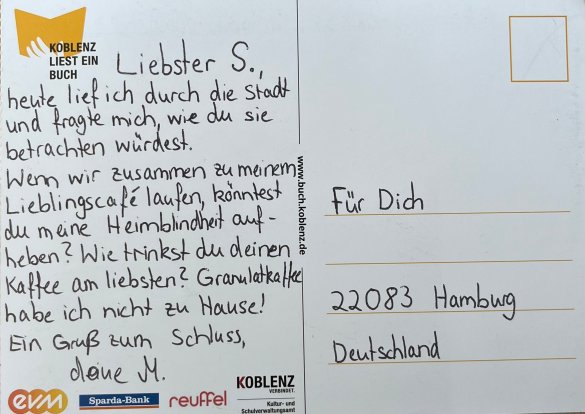 KOBLENZ
LIEST EIN
BUCH
Liebster S.,
heute lief ich durch die Stadt
und fragte mich, wie du sie
betrachten würdest.
Wenn wir zusammen zu meinem
Lieblingscafé laufen, könntest
du meine Heimblindheit auf-
heben? Wie trinkst du deinen
Kaffee am liebsten? Granulatkaffee
habe ich nicht zu Hause!
Ein Gruß zum Schluss,
deine M.
evm
Sparda-Bank
reuffel
KOBLENZ
VERBINDET.
Kultur- und
Schulverwaltungsamt
www.buch.koblenz.de
Für Dich
22083 Hamburg
Deutschland